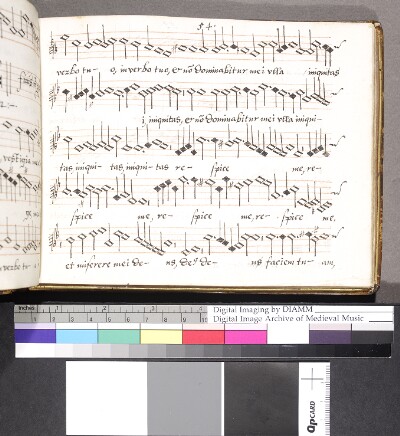 54.
verbo tu- o, in verbo tuo, et nõ dominabitur mei vlla iniqnitas
ij iniqnitas, et nõ dominabitur mei vlla iniqui-
tas iniqui- tas, iniqui-tas re- spice me, re-
spice me, re- spice me, re- spice me,
et miserere mei De- us, De9 De- us faciem tu- am,
inches
1 2
cm
Digital Imaging by DIAMM
Digital Image Archive of Medieval Music
QPCARD